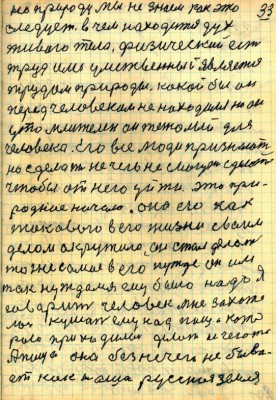 33
на природу мы не знаем как это
следует. в чем находится дух
живого тела, физический ест
труд или умственный является
трудом природы. какой бы он
перед человеком не находился но он
утомителен он тяжолый для
человека. Его все люди признают
но сделать нечего не смогли сделать
чтобы от него уйти. это при-
родное начало. оно его как
такового в его жизни своим
делом окружило, он стал делать
то же самое в его нужде он им
так нуждался ему было надо Я
говорит человек мне захоте
лось кушать ему над пищ. кото
рого приходилось
А пища она без ничего не быва-
ет как наша русская земля